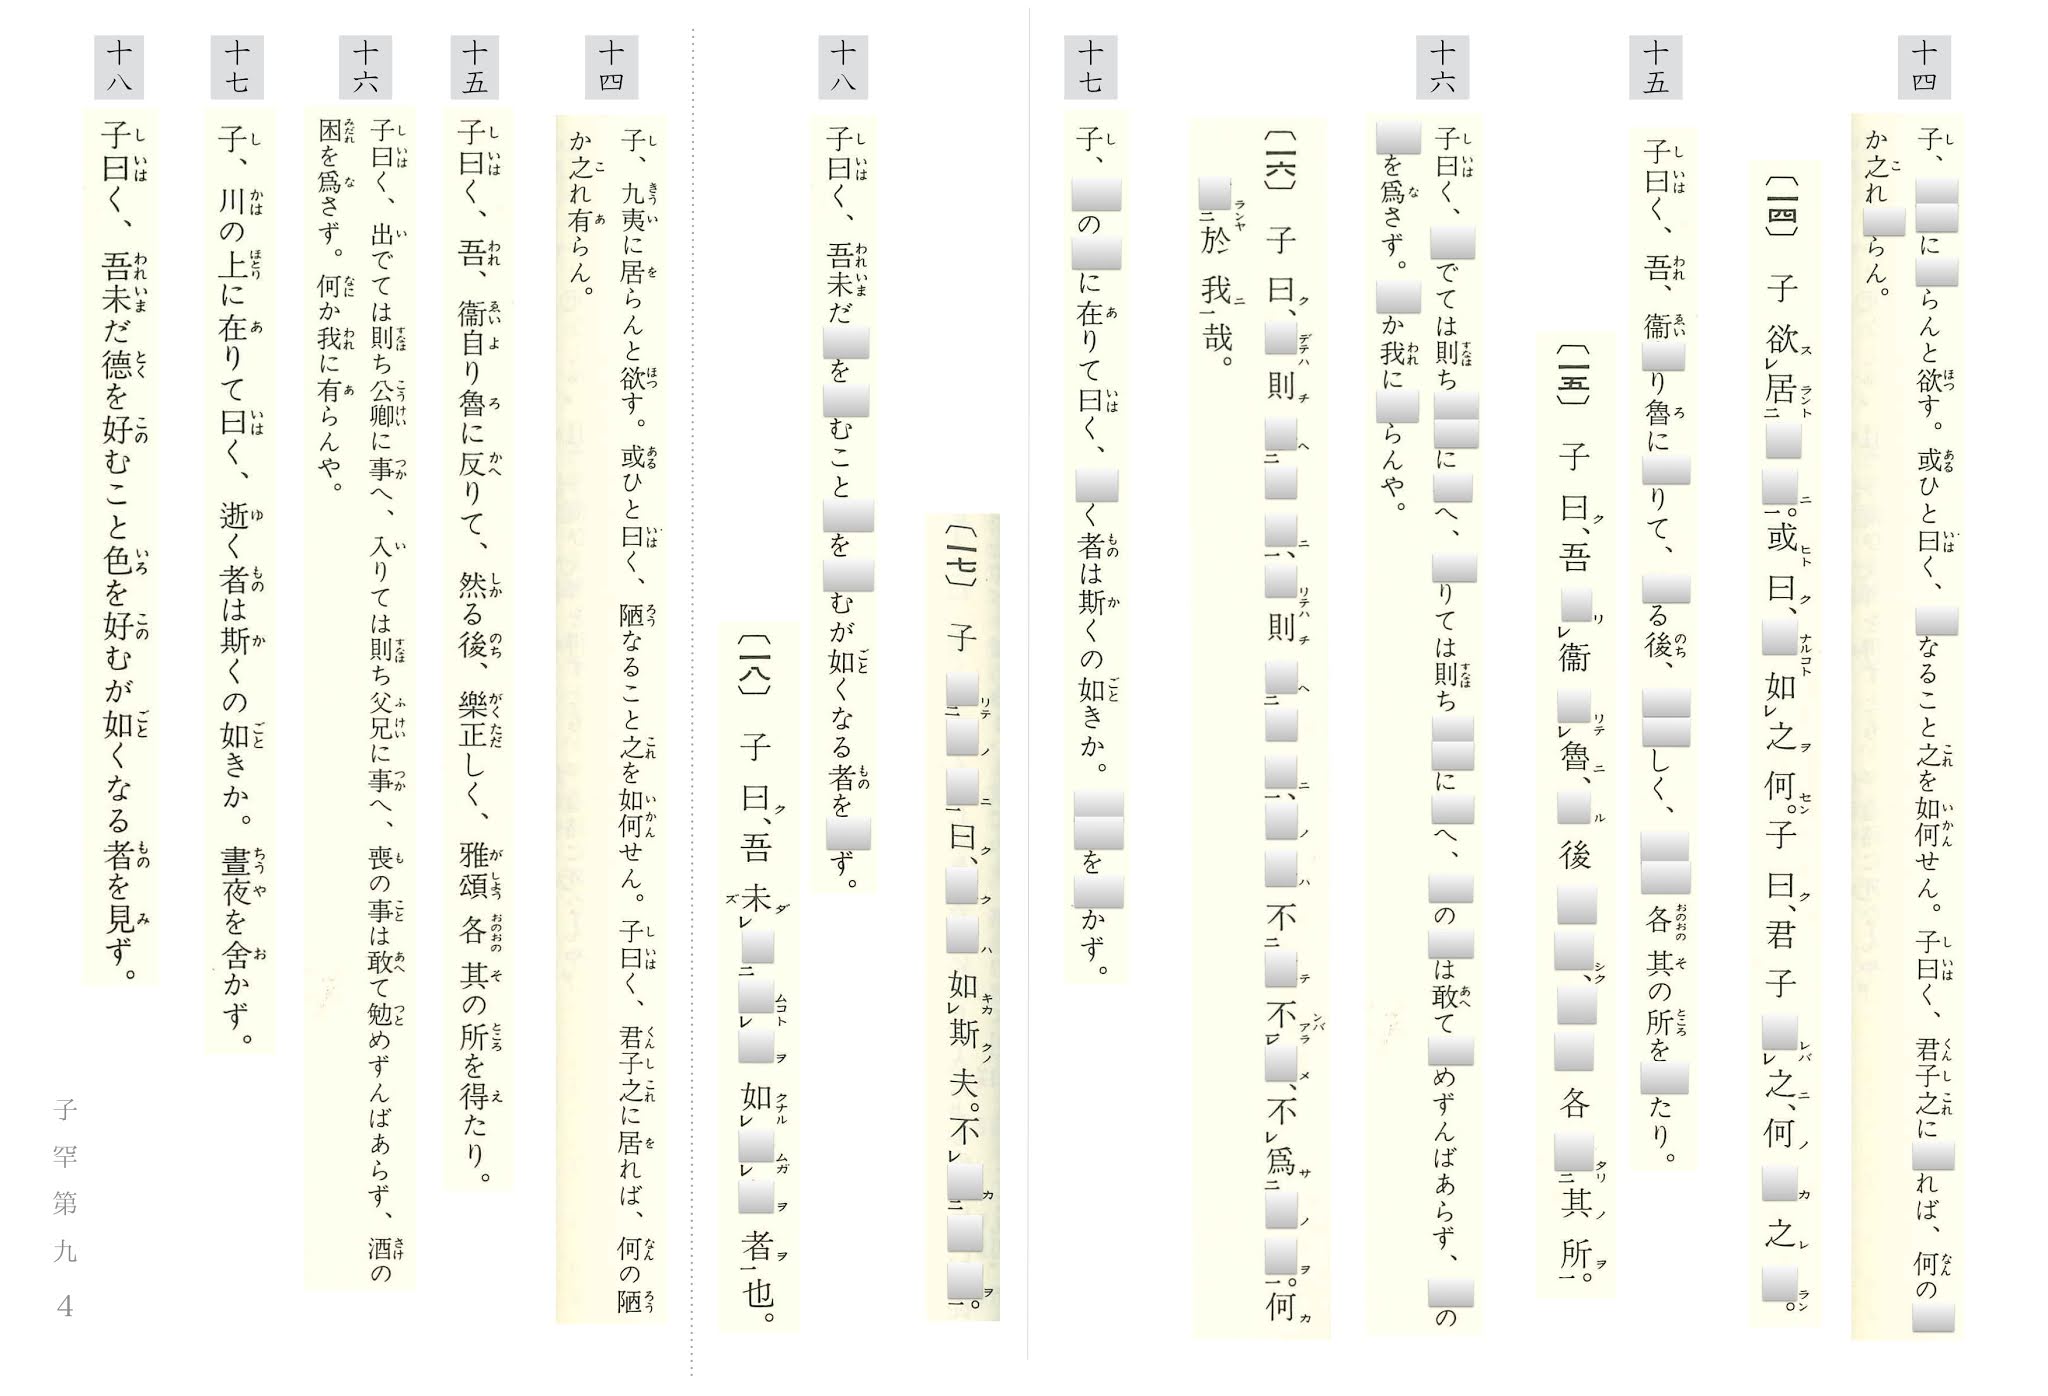 十四
子、□□に□らんと欲す。或ひと曰く、□なること之を如何せん。子曰く、君子之に□れば、何の□
か之れ□らん。
〔一四〕 子欲スレ居ラント二□□ニ一。或ヒト曰ク、□ナルコト如レ之ヲ何セン。子曰ク、君子□レバレ之ニ、何ノ□カ之レ□ラン。
十五
子曰く、吾、衞□り魯に□りて、□る後、□□しく、□□各其の所を□たり。
〔一五〕 子曰ク、吾□リレ衞□リテレ魯ニ、□ル後□□シク、□□各□タリ二其ノ所ヲ一。
十六
子曰く、□でては則ち□□に□へ、□りては則ち□□に□へ、□の□は敢て□めずんばあらず、□の
□を爲さず。□か我に□らんや。
〔一六〕 子曰ク、□デテハ則チ□ヘ二□□ニ一、□リテハ則チ□ヘ二□□ニ一、□ノ□ハ不二□テ不ンバアラレ□メ一、不レ爲サ二□ノ□ヲ一。何カ
□ランヤ二於我ニ一哉。
十七
子、□の□に在りて曰く、□く者は斯くの如きか。□□を□かず。
〔一七〕 子□リテ二□ノ□ニ一曰ク、□ク□ハ如キカレ斯クノ夫。不レ□カ二□□ヲ一。
十八
子曰く、吾未だ□を□むこと□を□むが如くなる者を□ず。
〔一八〕 子曰ク、吾未ダズレ□二□ムコトレ□ヲ如クナルレ□ムガレ□ヲ者ヲ一也。
十四
子、九夷に居らんと欲す。或ひと曰く、陋なること之を如何せん。子曰く、君子之に居れば、何の陋
か之れ有らん。
十五
子曰く、吾、衞自り魯に反りて、然る後、樂正しく、雅頌各其の所を得たり。
十六
子曰く、出でては則ち公卿に事へ、入りては則ち父兄に事へ、喪の事は敢て勉めずんばあらず、酒の
困を爲さず。何か我に有らんや。
十七
子、川の上に在りて曰く、逝く者は斯くの如きか。晝夜を舍かず。
十八
子曰く、吾未だ德を好むこと色を好むが如くなる者を見ず。
子罕第九 4